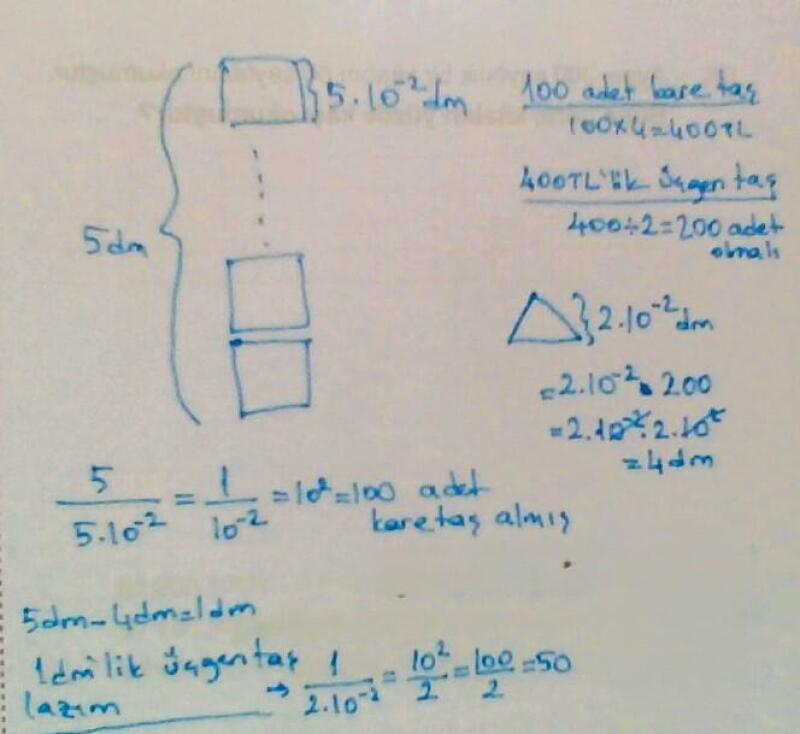 5.10⁻² dm
5dm
100 adet kare taş
100×4=400TL
400TL'lik üçgen taş
400÷2=200 adet
olmalı
2.10⁻² dm
=2.10⁻² . 200
=2.10⁻² . 2.10²
=4dm
5/5.10⁻² = 1/10⁻² =10²=100 adet
kare taş almış
5dm-4dm=1dm
1dm'lik üçgen taş
lazım → 1/2.10⁻² = 10²/2 = 100/2 =50